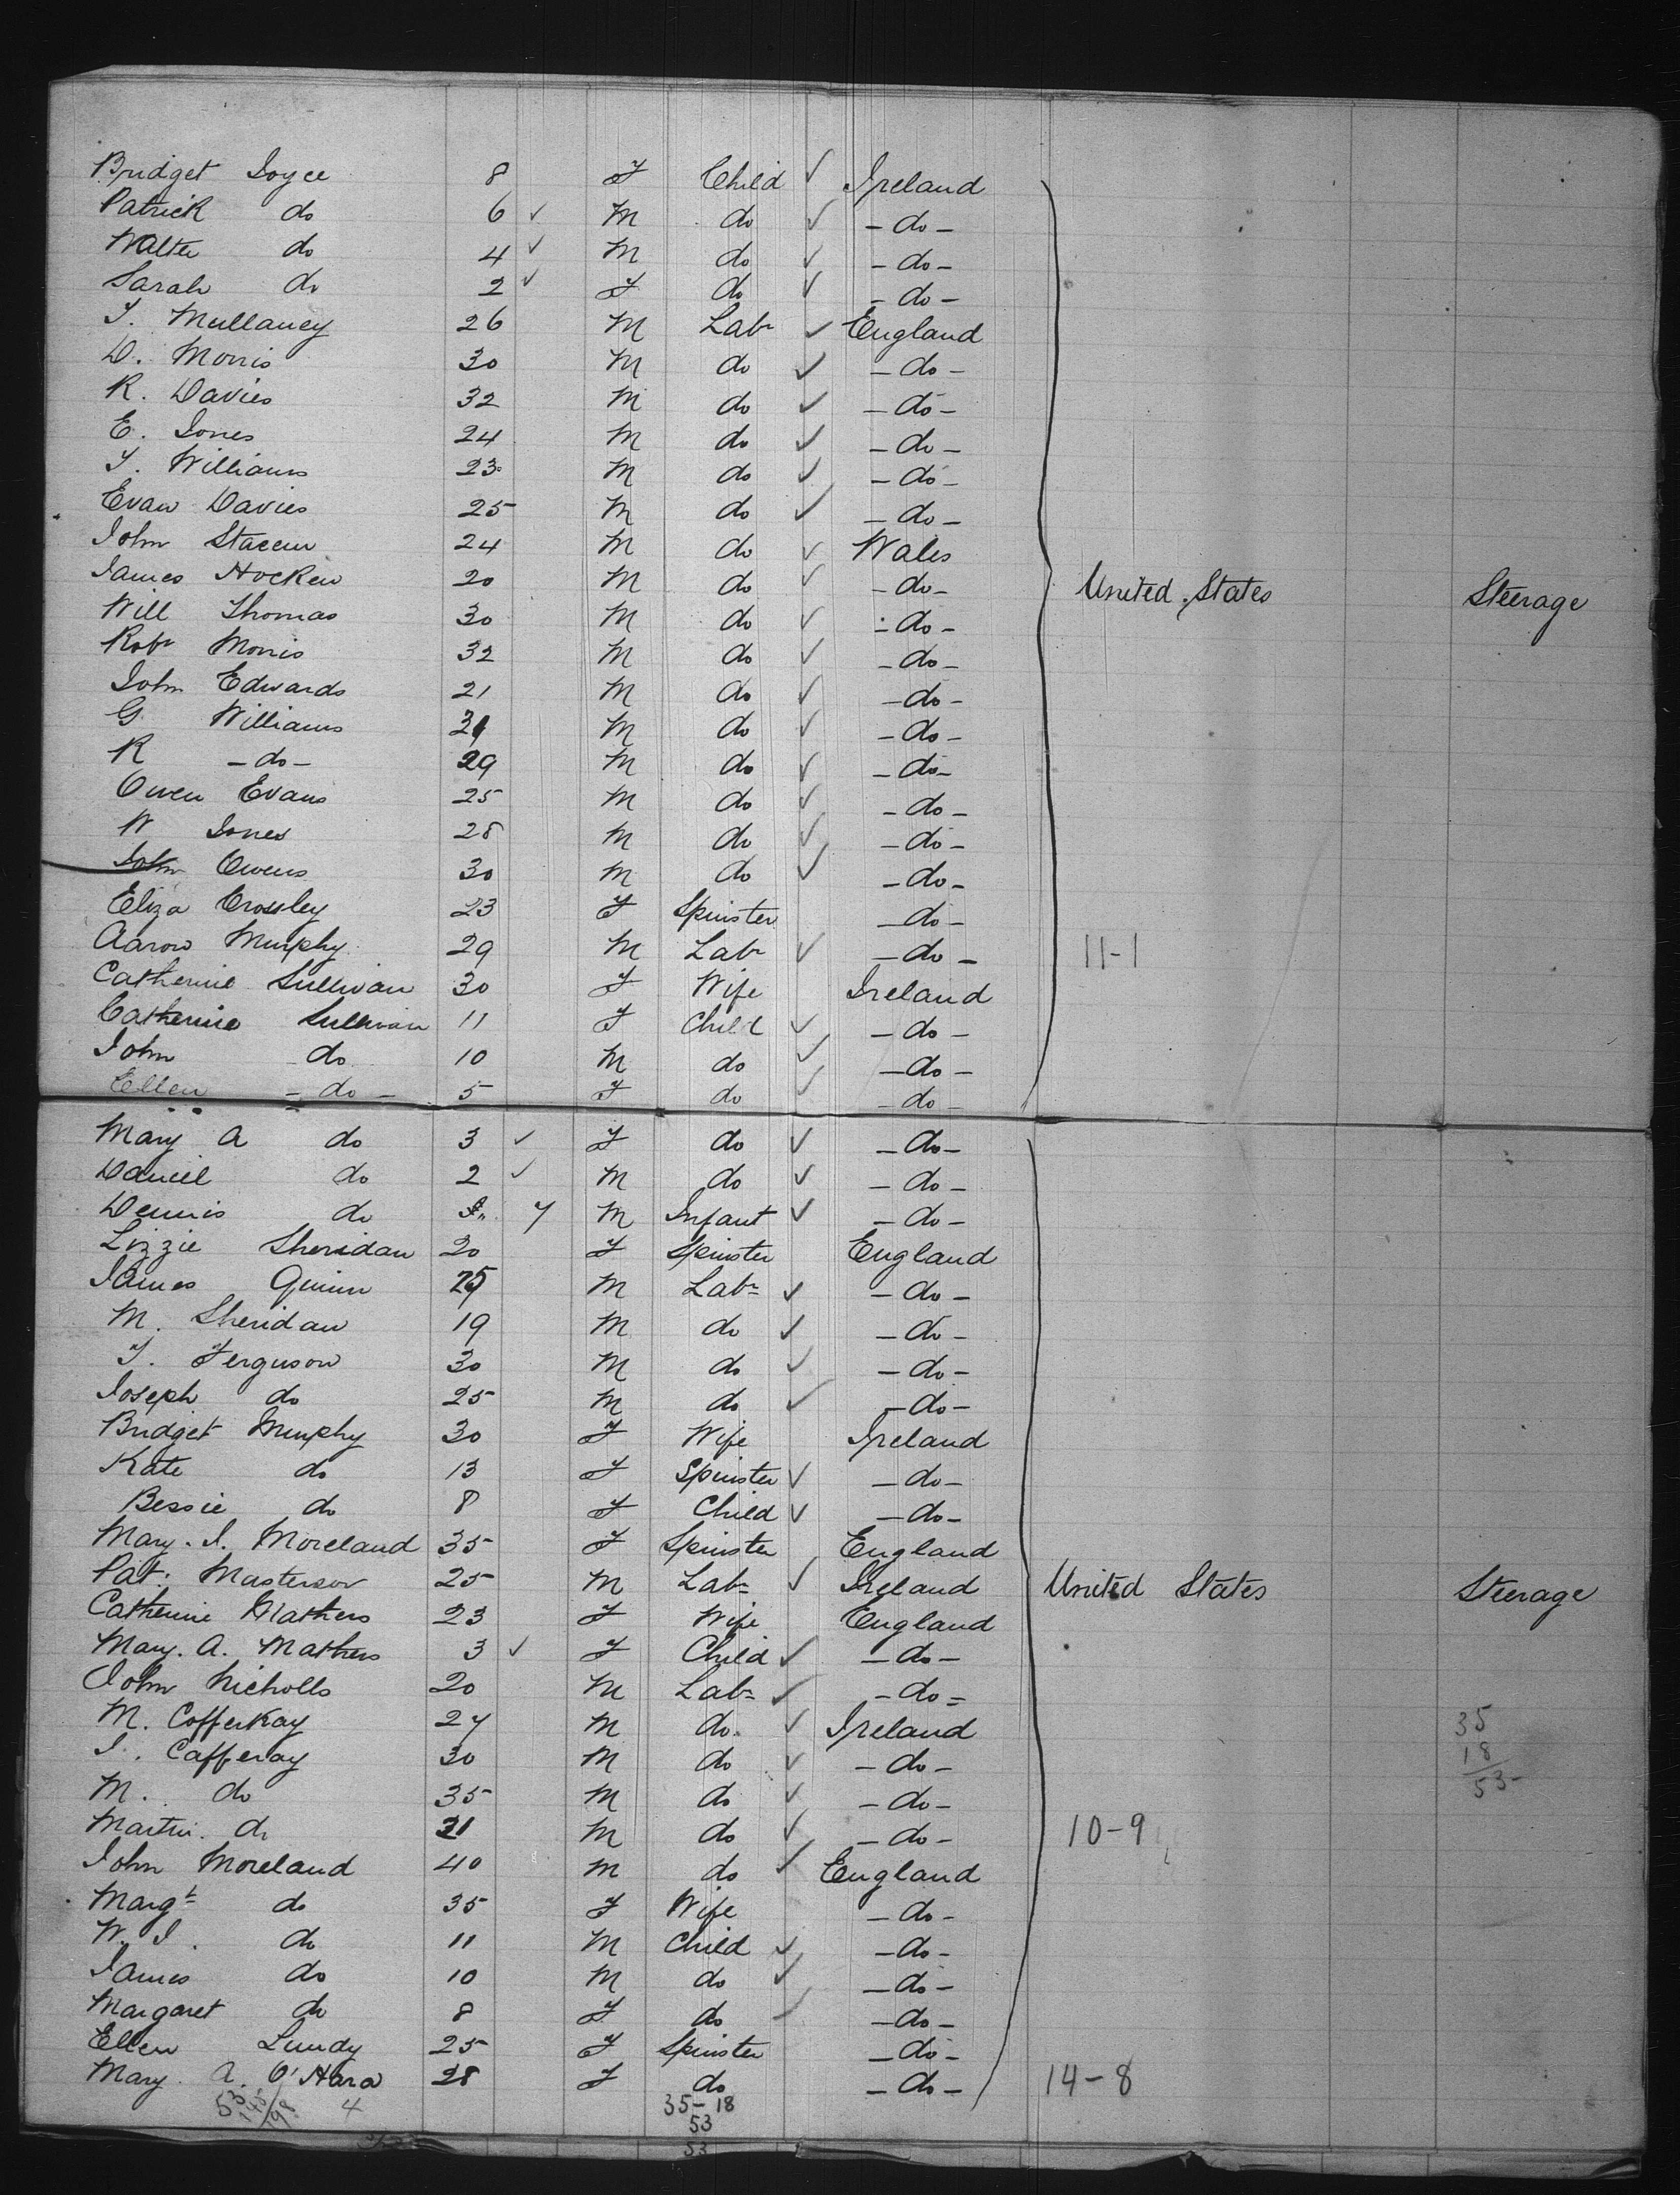 Bridget Joyce 8 F Child ✓ Ireland
Patrick do 6 ✓ M do ✓ - do -
Walter do 4 ✓ M do ✓ - do -
Sarah do 2 ✓ F do ✓ - do -
T. Mullaney 26 M Labr ✓ England
D. Morris 30 M do ✓ - do -
R. Davies 32 M do ✓ - do -
E. Jones 24 M do ✓ - do -
T. Williams 23 M do ✓ - do -
Evan Davies 25 M do ✓ - do -
John 24 M do ✓ Wales
James Hocken 20 M do ✓ - do - United States Steerage
Will Thomas 30 M do ✓ - do -
Robt Morris 32 M do ✓ - do -
John Edwards 21 M do ✓ - do -
G Williams M do ✓ - do -
R - do - 29 M do ✓ - do -
Owen Evans 25 M do ✓ - do -
W Jones 28 M do ✓ - do -
John Owens 30 M do ✓ - do -
Eliza Crossley 23 F Spinster - do -
Aaron Murphy 29 M Labr ✓ - do - 11-1
Catherine Sullivan 30 F Wife Ireland
Catherine Sullivan 11 F Child ✓ - do -
John do 10 M do ✓ - do -
Ellen - do - 5 F do ✓ - do -
Mary A do 3 ✓ F do ✓ - do -
Daniel do 2 ✓ M do ✓ - do -
Dennis do M Infant ✓ - do -
Lizzie Sheridan 20 F Spinster England
James Quinn 25 M Labr ✓ - do -
M. Sheridan 19 M do ✓ - do -
T. Ferguson 30 M do ✓ - do -
Joseph do 25 M do ✓ - do -
Bridget Murphy 30 F Wife Ireland
Kate do 13 F Spinster ✓ - do -
Bessie do 8 F Child ✓ - do -
Mary. J. Moreland 35 F Spinster England
Pat. Masterson 25 M Labr ✓ Ireland United States Steerage
Catherine Mathers 23 F Wife England
Mary. A. Mathers 3 ✓ F Child ✓ - do -
John Nicholls 20 M Labr ✓ - do -
M. Cofferkay 27 M do. ✓ Ireland 35
J. Cafferay 30 M do ✓ - do - 18
M. do 35 M do ✓ - do - 53
Martin. do 31 M do ✓ - do - 10-9
John Moreland 40 M do ✓ England
Margt do 35 F Wife - do -
W. J. do 11 M Child ✓ - do -
James do 10 M do ✓ - do -
Margaret do 8 F do ✓ - do -
Ellen Lundy 25 F Spinster - do -
Mary. A. O'Hara 28 F do - do - 14-8
53 145 198 4 35-18
53
53